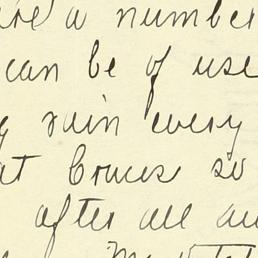 are a number
can be of use
rain every
at Cruces so
after all